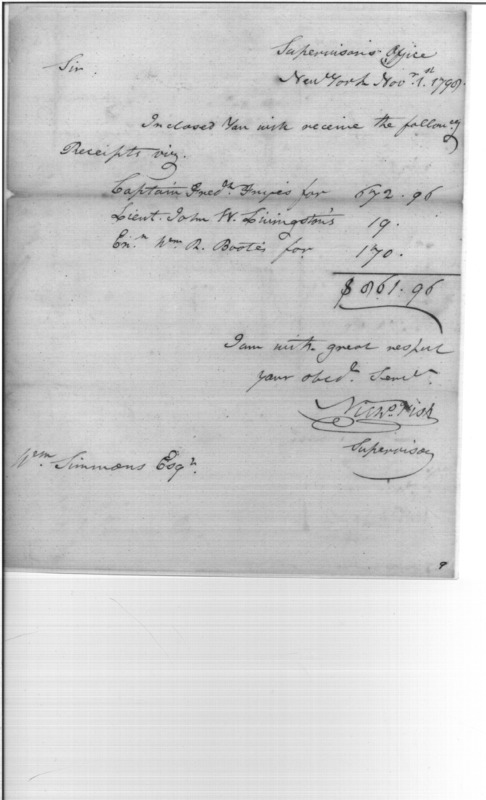 Supervisor's Office
New York Nov.r 1.st 1798.
Sir
Inclosed You will receive the following
Receipts viz.
Captain Fred.k Fryes for 672.96
Lieut. John W. Livingston's 19.
En.n Wm. R. Bootes for 170.
$861.96
I am with great respect
your obed.t Serv.t
Nich.s Fish
Supervisor
Wm Simmons Esq.r
9